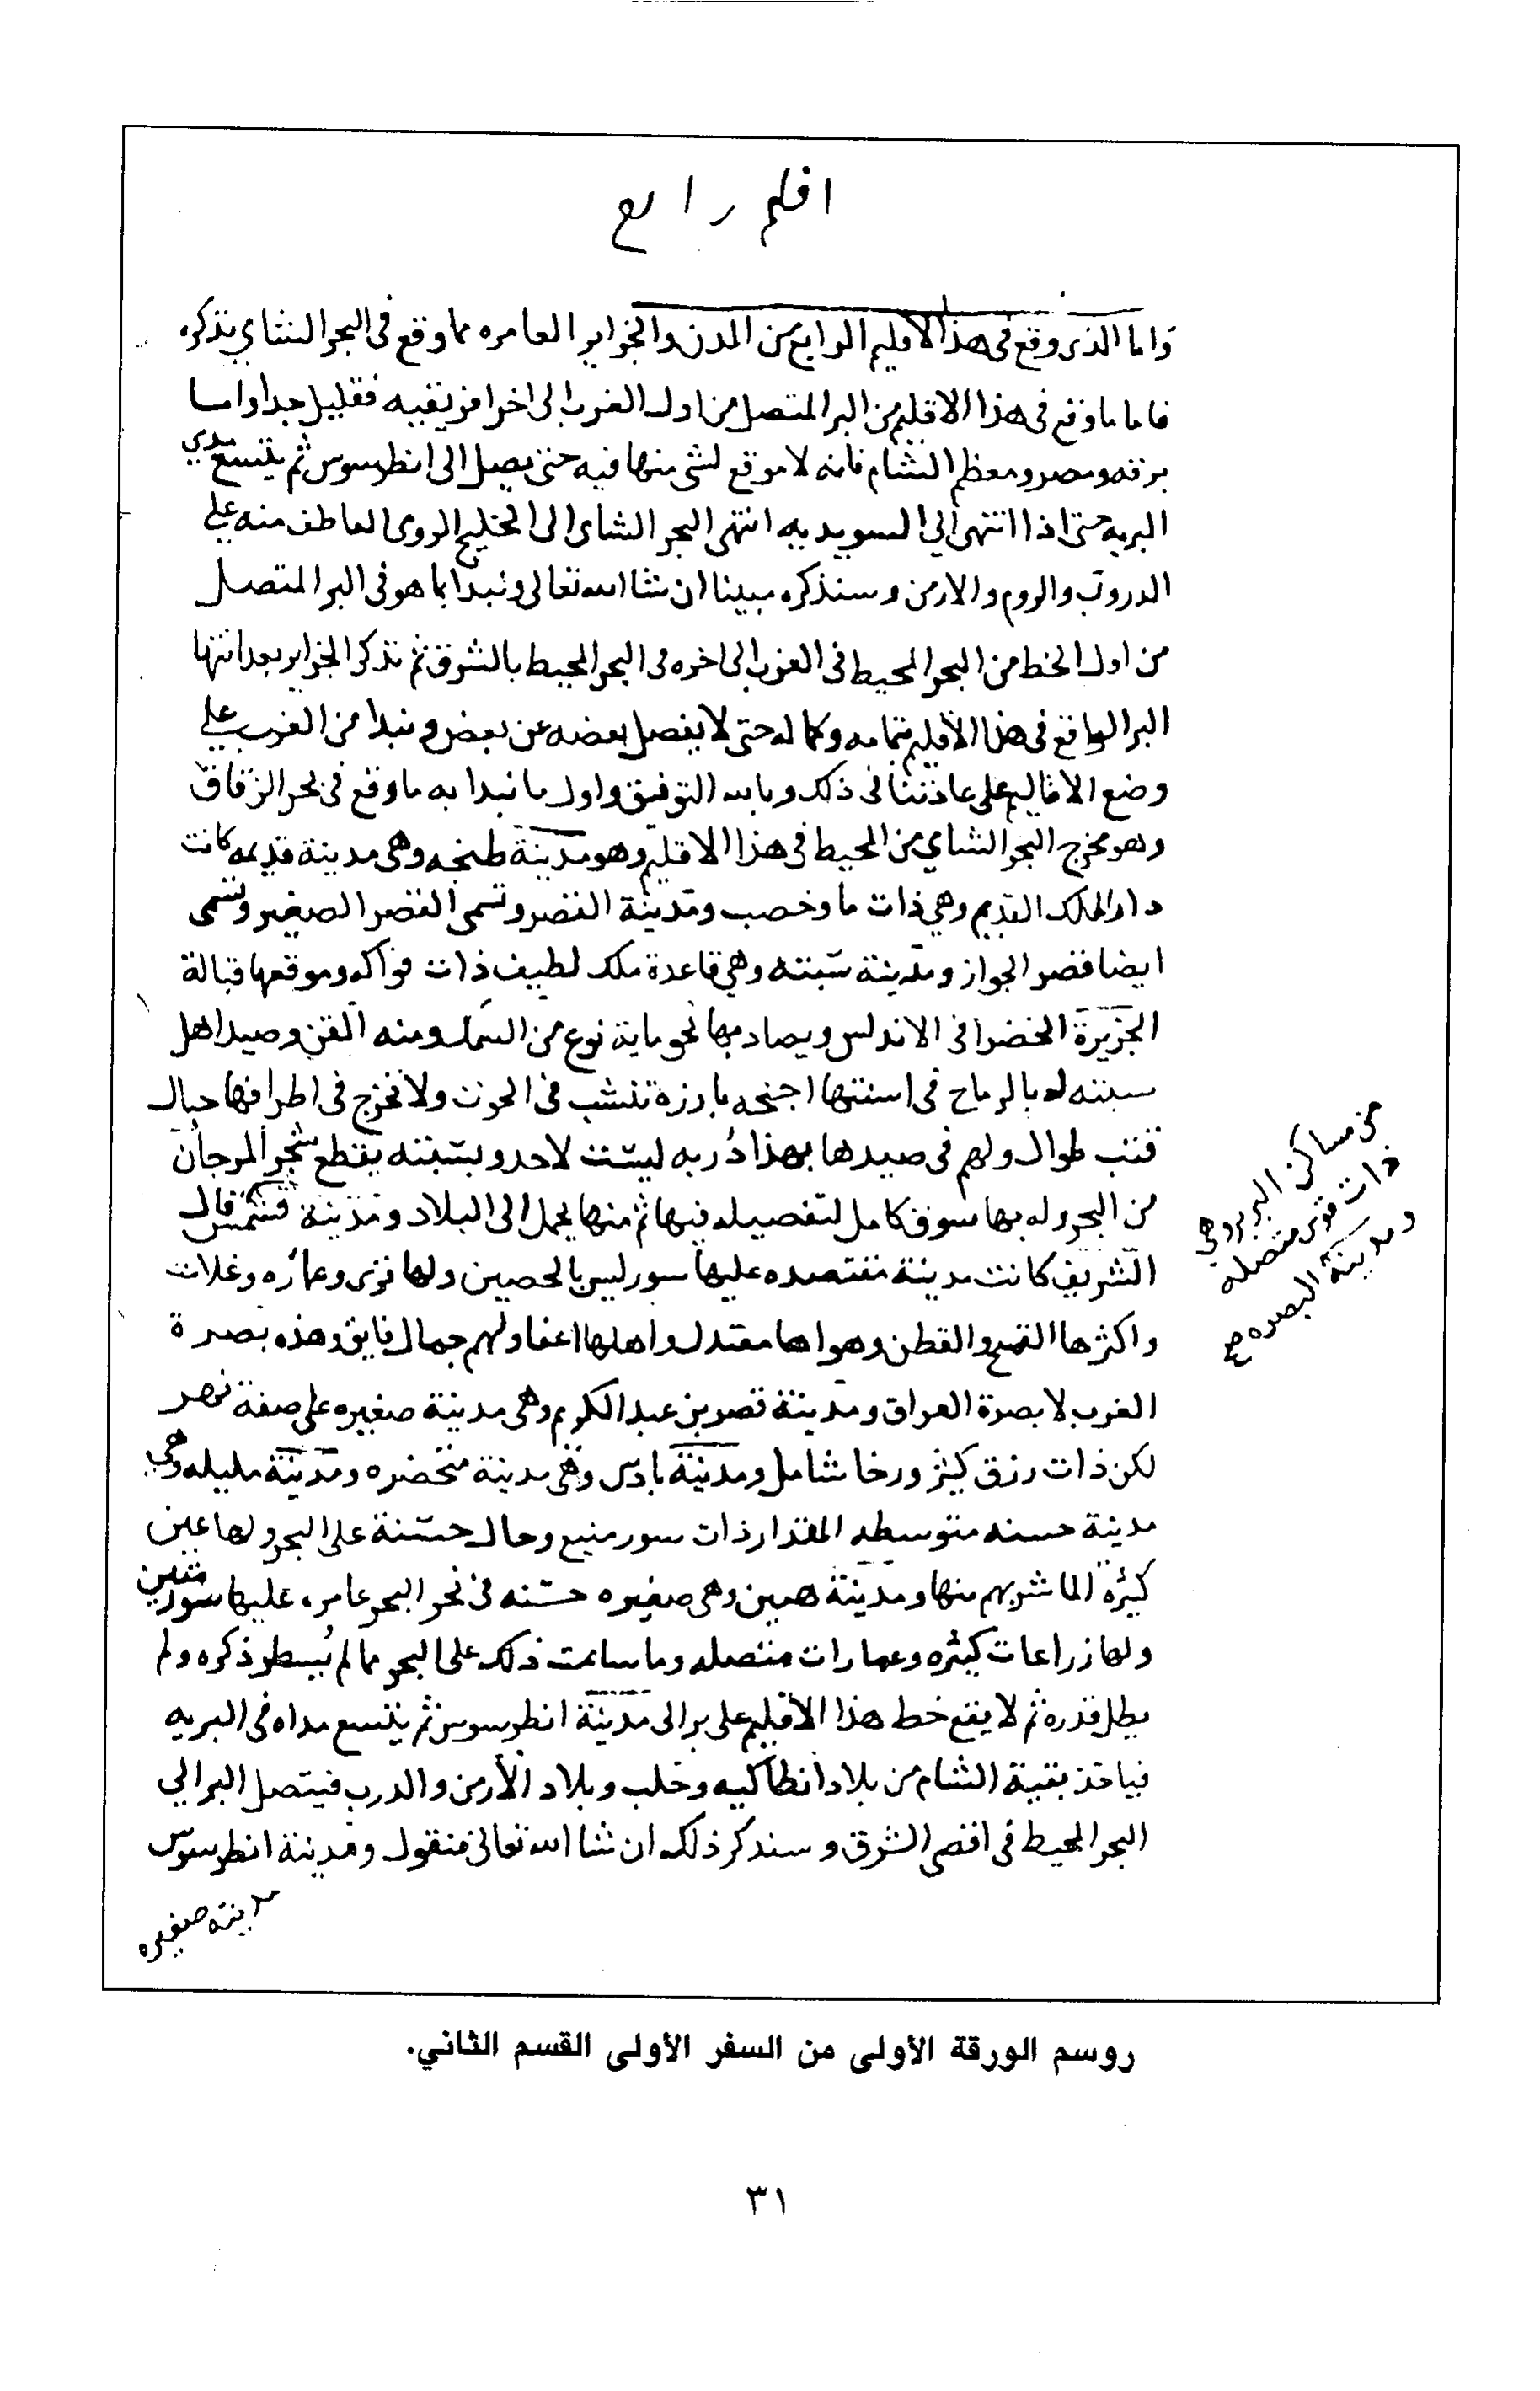 اقليم رابع
واما الذى وقع فى هذا الاقليم الرابع من المدن والجزاير العامره مما وقع فى البحر الشاي نذكره
فاما ما وقع فى هذا الاقليم من البر المتصل من اول الغرب الى اخر افريقيه فقليل جدا واما
برقه ومصر ومعظم الشام فانه لا موقع لشى منها فيه حتى يصل الى انطرسوس ثم يتسع مدي
البريه حتى اذا انتهى الي السويديه انتهى البحر الشاى الى الخليج الروى العاطف منه علي
الدروب والروم والارمن وسنذكره مبينا ان شا الله تعالى ونبدا بما هو فى البر المتصل
من اول الخط من البحر المحيط فى الغرب الى اخره فى البحر المحيط بالشرق ثم نذكر الجزاير بعد انتها
البر الواقع فى هذا الاقليم بتمامه وكماله حتى لا يفصل بعضه عن بعض ونبدا من الغرب علي
وضع الاقاليم على عادتنا فى ذلك وبالله التوفيق واول ما نبدا به ما وقع فى بحر الزقاق
وهو مخرج البحر الشاي من المحيط فى هذا الاقليم وهو مدينة طنجه وهى مدينة قديمه كانت
دار الملك القديم وهي ذات ما وخصب ومدينة القصر وتسمى القصر الصغير وتسمى
ايضا قصر الجواز ومدينة سبته وهي قاعدة ملك لطيف ذات فواكه وموقعها قبالة
الجزيرة الخضرا فى الاندلس ويصاد بها نحو ماية نوع من السمك ومنه القن وصيد اهل
سبته له بالرماح فى اسنتها اجنحه بارزة تنشب فى الحوت ولا تخرج فى اطرافها حبال
قنب طوال ولهم فى صيدها بهذا دربه ليست لاحد وبسبته يقطع شجر المرجان
من البحر وله بها سوق كامل لتفصيله فيها ثم منها يحمل الى البلاد ومدينة قال
الشريف كانت مدينة مقتصده عليها سور ليس بالحصين ولها قرى وعماره وغلات
واكثرها القمح والقطن وهواها معتدل واهلها اعفا ولهم جمال فايق وهذه بصرة
الغرب لا بصرة العراق ومدينة قصر بن عبد الكريم وهى مدينة صغيره على صفة نهر
لكن ذات رزق كثير ورخا شامل ومدينة بادس وهى مدينة متحضره ومدينة مليله وهي
مدينة حسنه متوسطه المقدار ذات سور منيع وحال حسنة على البحر ولها عين
كثيرة الما شربهم منها ومدينة هنين وهى صغيره حسنه فى نحر البحر عامره عليها سور متين
ولها زراعات كثيره وعمارات متصله وما سامت ذلك على البحر مما لم يسطر ذكره ولم
يطل قدره ثم لا يقع خط هذا الاقليم على بر الى مدينة انطرسوس ثم يتسع مداه فى البريه
فياخذ بقية الشام من بلاد انطاكيه وحلب وبلاد الأرمن والدرب فيتصل البر الي
البحر المحيط فى اقصى الشرق وسنذكر ذلك ان شا الله تعالى فنقول ومدينة انطرسوس
مدينة صغيره
من مساكن البربر وهي
ذات قرى متصله
ومدينة البصره صح
روسم الورقة الأولى من السفر الأولى القسم الثاني.
٣١